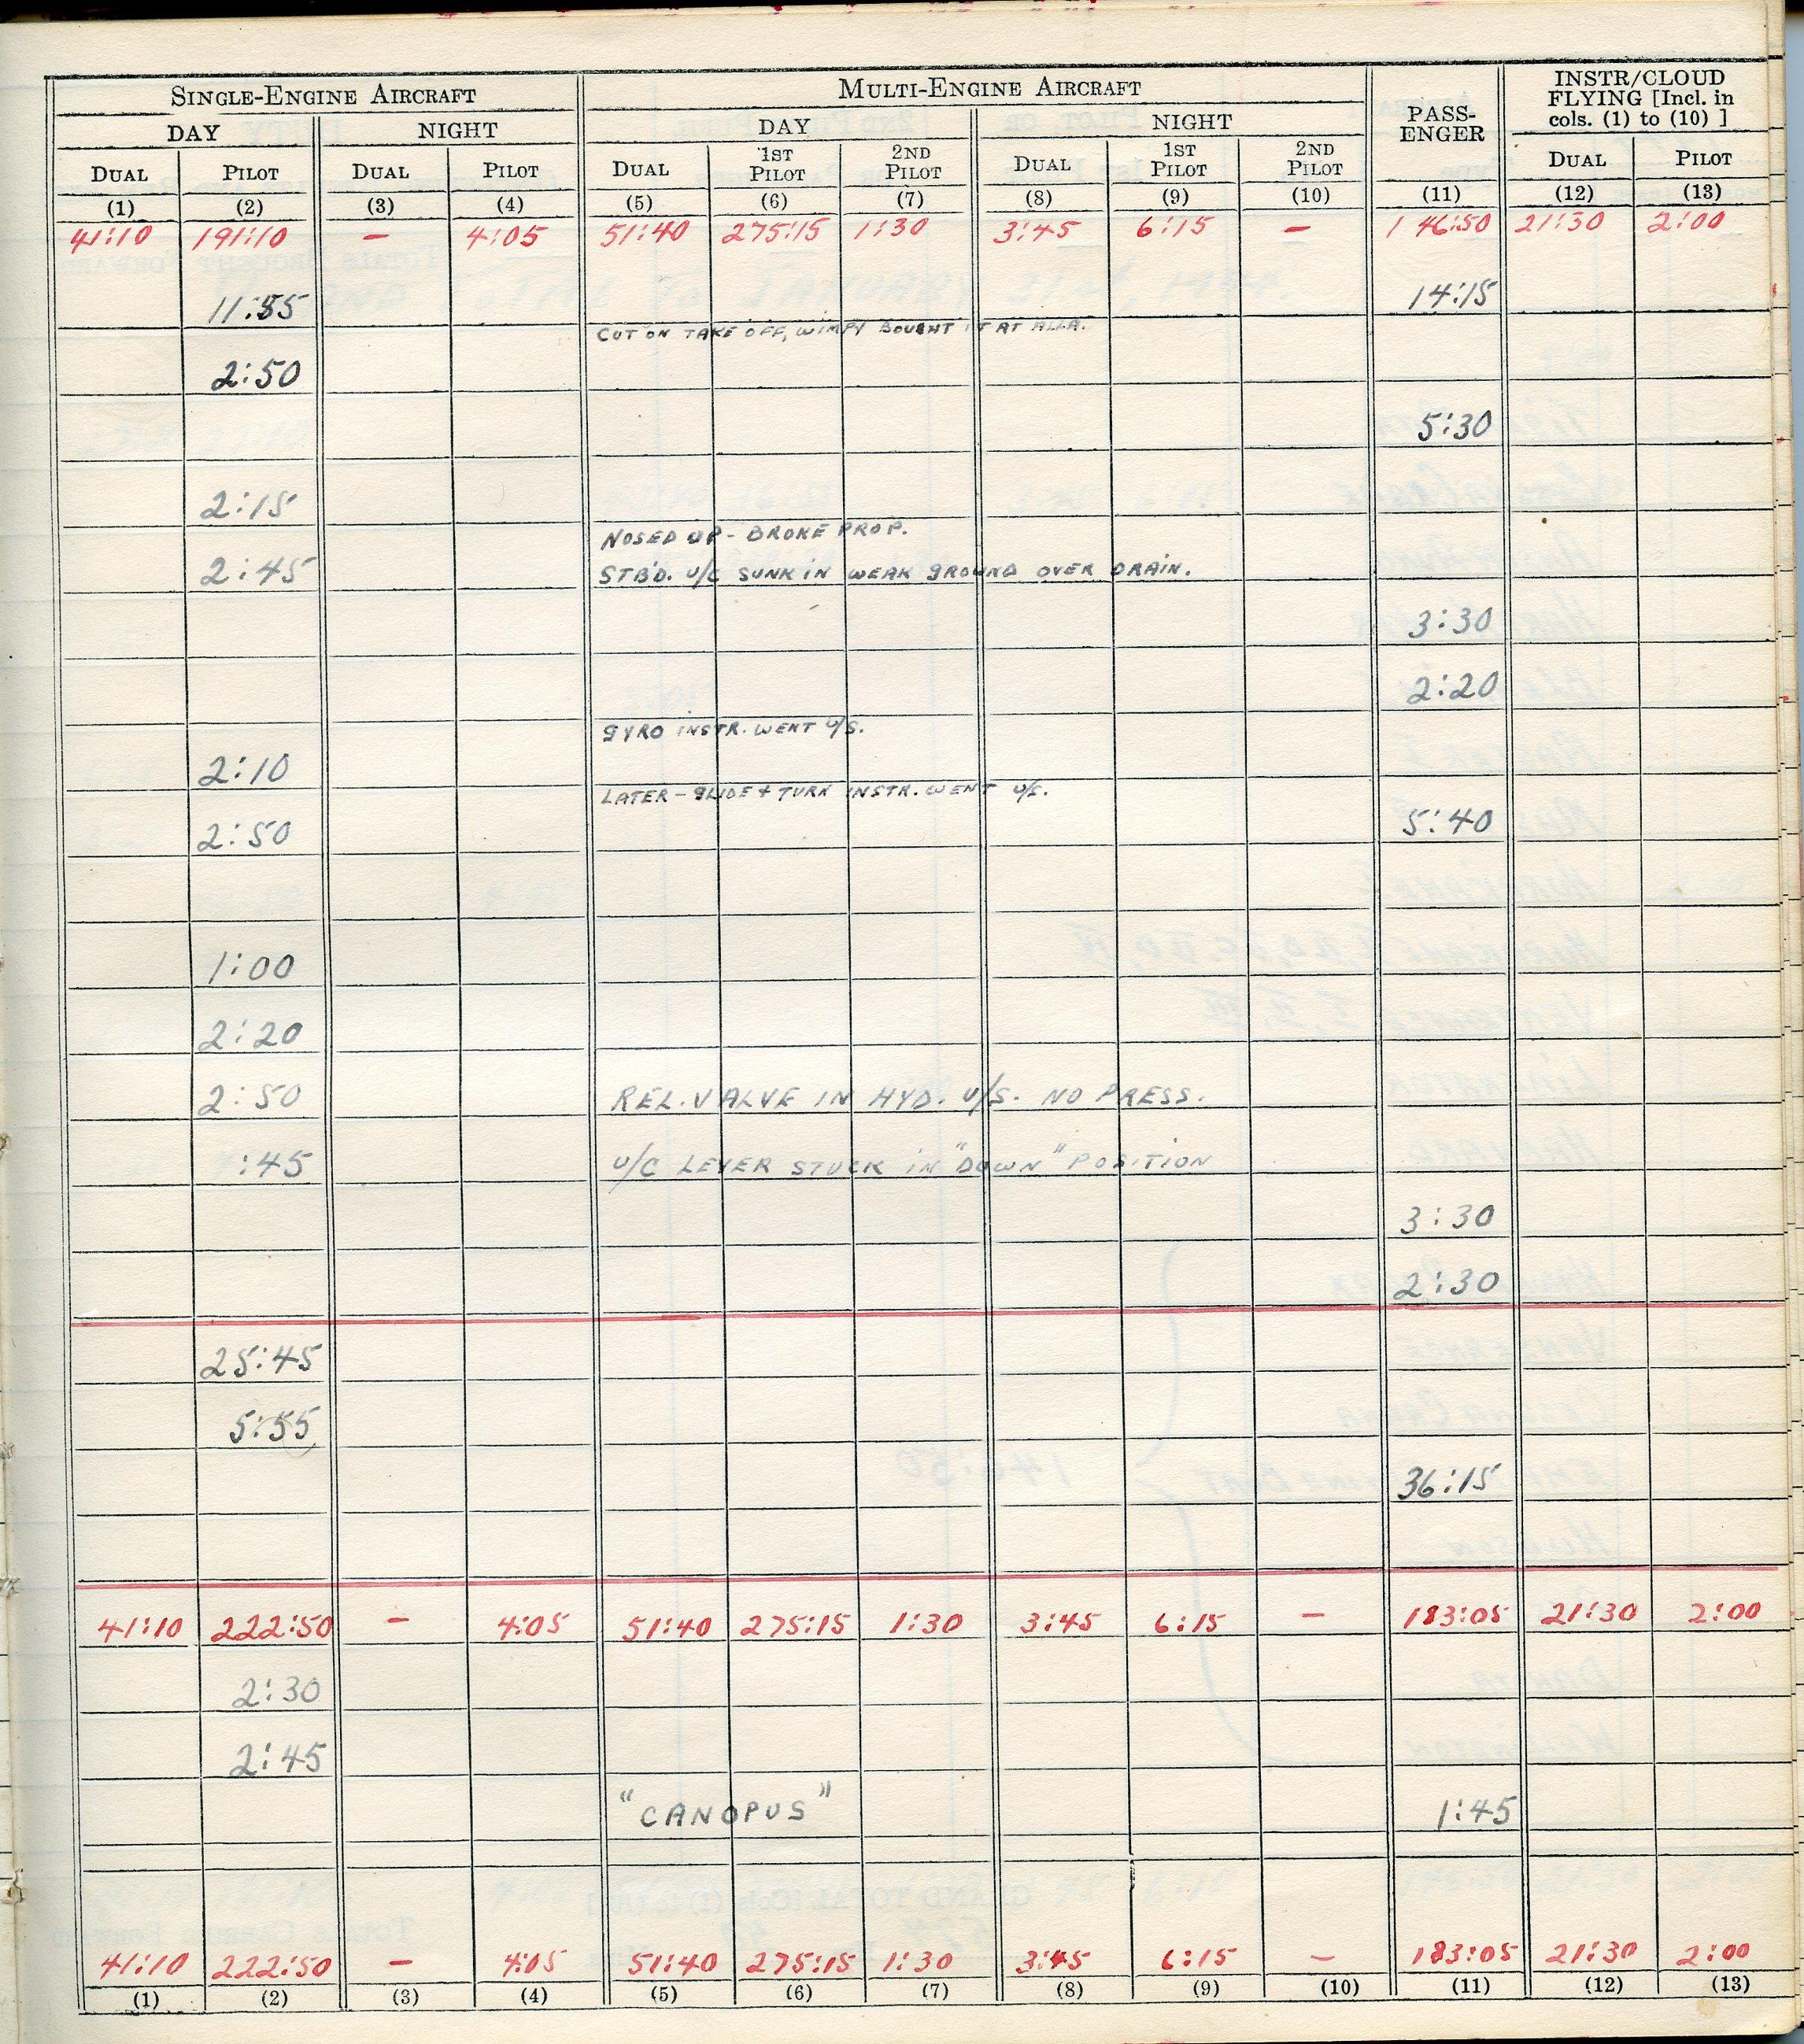 SINGLE-ENGINE AIRCRAFT MULTI-ENGINE AIRCRAFT PASS-ENGER INSTR/CLOUD FLYING [Incl. in cols. (1) to (10) ]
DAY NIGHT DAY NIGHT
DUAL PILOT DUAL PILOT DUAL 1ST PILOT 2ND PILOT DUAL 1ST PILOT 2ND PILOT DUAL PILOT
(1) (2) (3) (4) (5) (6) (7) (8) (9) (10) (11) (12) (13)
41:10 191:10 – 4:05 51:40 275:15 1:30 3:45 6:15 – 146:50 21:30 2:00
11:55 14:15
CUT ON TAKE OFF, WIMPY BOUGHT IT AT ALLA.
2:50
5:30
2:15
NOSED UP - BROKE PROP.
2:45 STB'D. U/C SUNK IN WEAK GROUND OVER DRAIN.
3:30
2:20
GYRO INSTR. WENT U/S.
2:10
LATER - GLIDE + TURN INSTR. WENT U/S.
2:50 5:40
1:00
2:20
2:50 REL. VALVE IN HYD. U/S. NO PRESS.
:45 U/C LEVER STUCK IN "DOWN" POSITION
3:30
2:30
25:45
5:55
36:15
41:10 222:50 – 4:05 51:40 275:15 1:30 3:45 6:15 – 183:05 21:30 2:00
2:30
2:45
"CANOPUS" 1:45
41:10 222:50 – 4:05 51:40 275:15 1:30 3:45 6:15 – 183:05 21:30 2:00
(1) (2) (3) (4) (5) (6) (7) (8) (9) (10) (11) (12) (13)